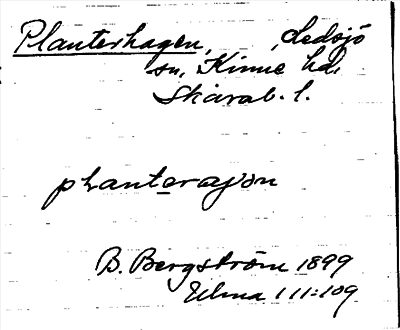 Planterhagen, Ledsjö
sn, Kinne hd,
Skarab. l.
plantərajən
B. Bergström 1899
Ulma 111:109